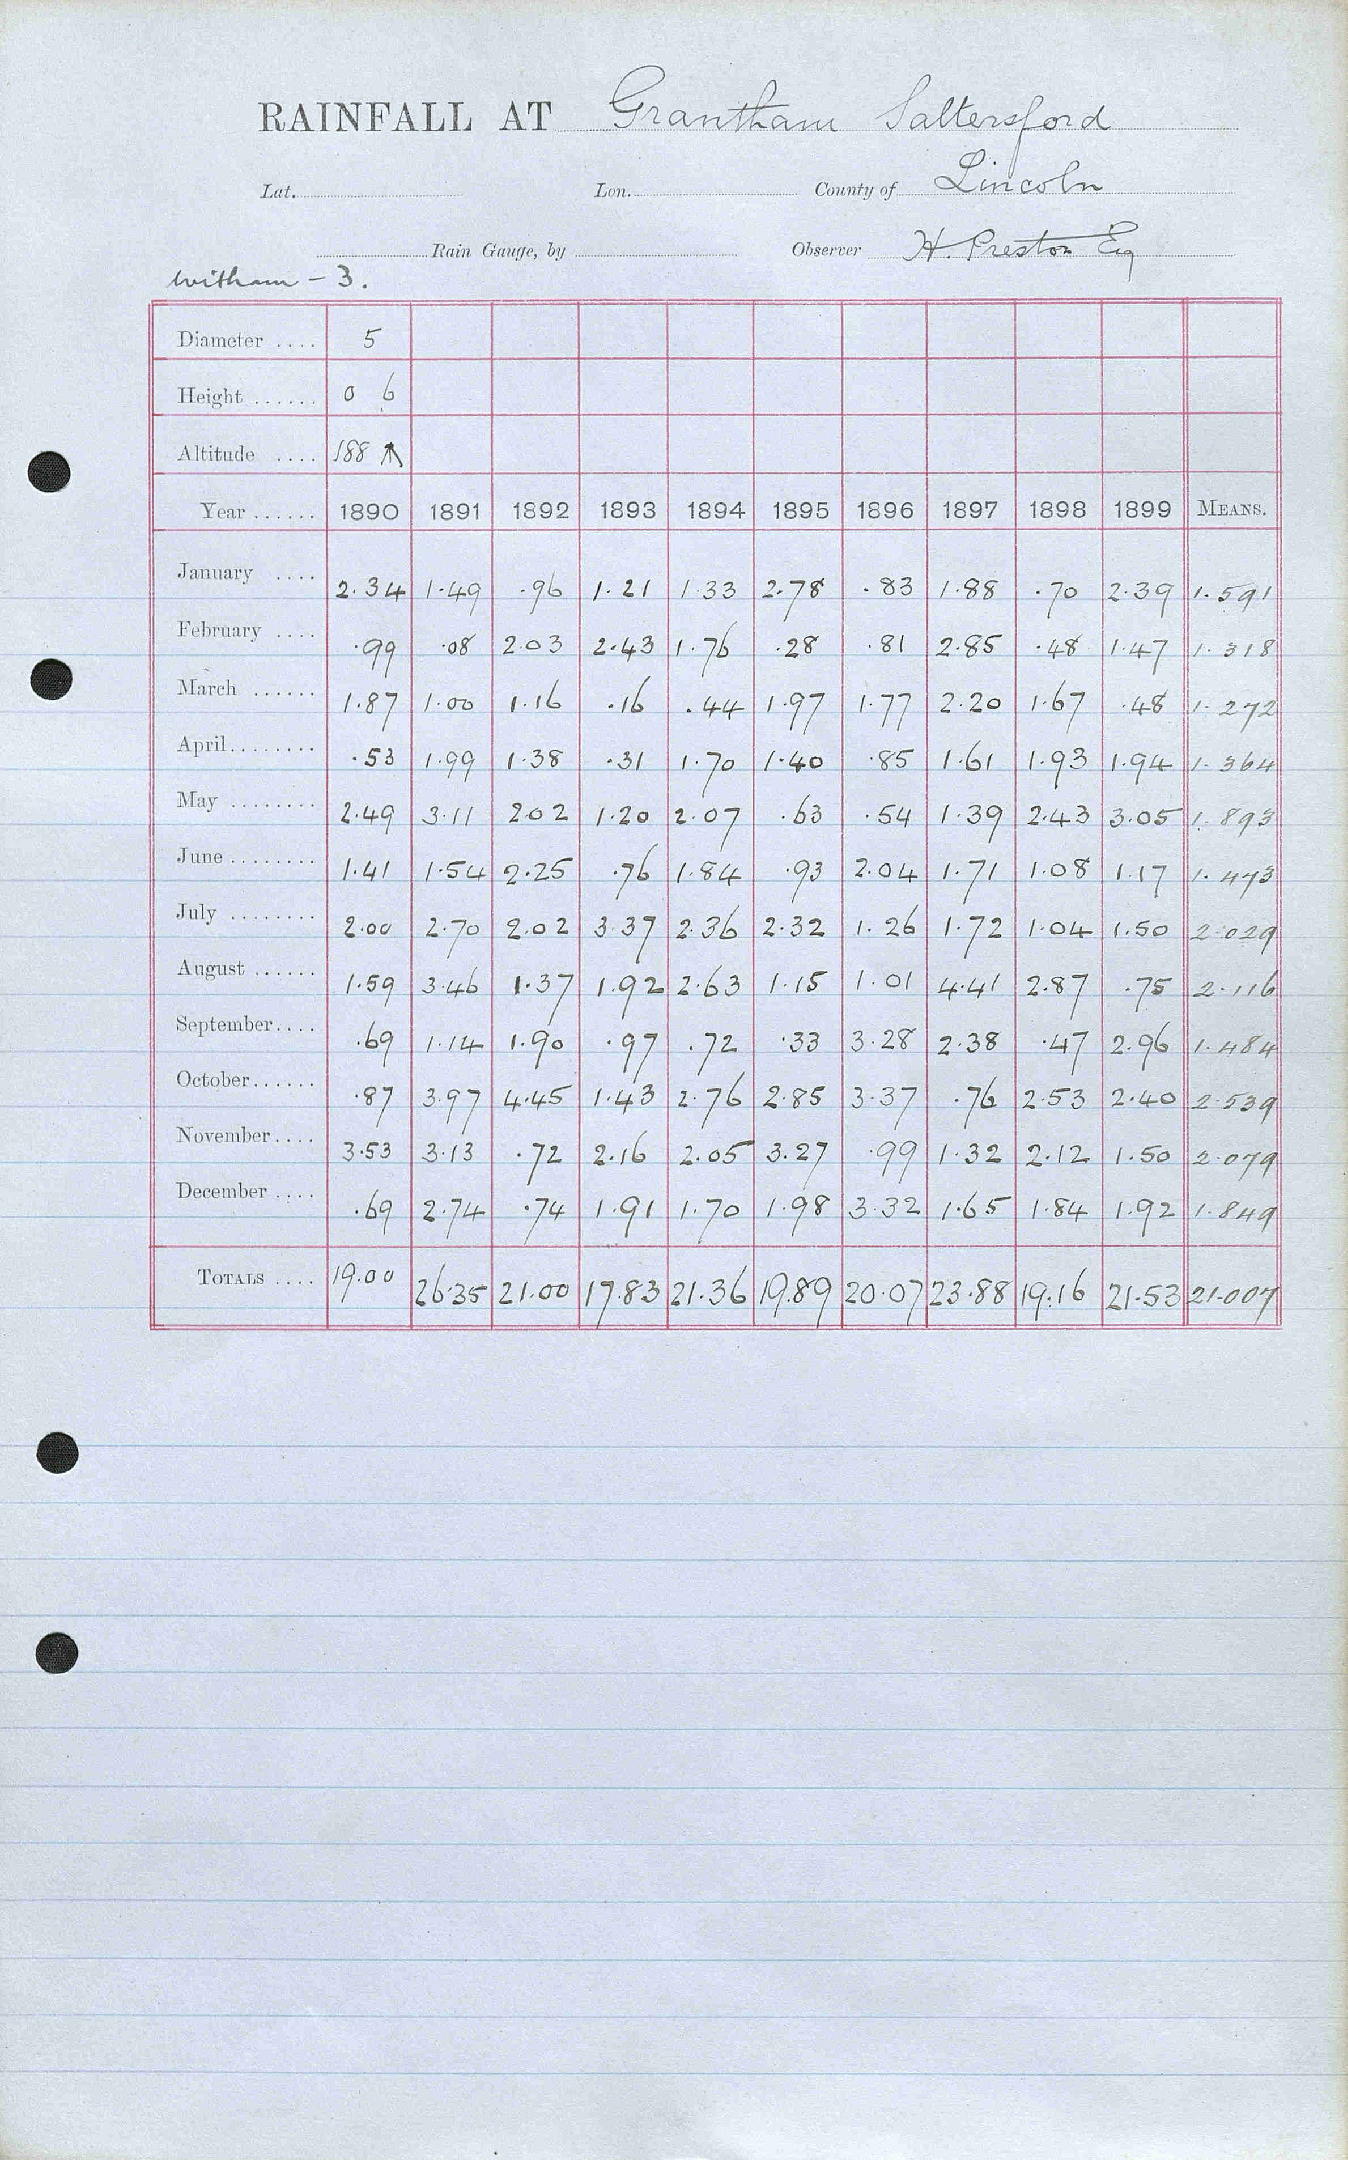 RAINFALL AT Grantham Saltersford
Lat. Lon. County of Lincoln
Rain Gauge, by Observer H. Preston Esq
Witham - 3.
Diameter .... 5
Height ...... 0 6
Altitude .... 188
Year ...... 1890 1891 1892 1893 1894 1895 1896 1897 1898 1899 MEANS.
January .... 2.34 1.49 .96 1.21 1.33 2.78 .83 1.88 .70 2.39 1.591
February .... .99 .08 2.03 2.43 1.76 .28 .81 2.85 .48 1.47 1.318
March ...... 1.87 1.00 1.16 .16 .44 1.97 1.77 2.20 1.67 .48 1.272
April ........ .53 1.99 1.38 .31 1.70 1.40 .85 1.61 1.93 1.94 1.364
May ........ 2.49 3.11 2.02 1.20 2.07 .63 .54 1.39 2.43 3.05 1.893
June ........ 1.41 1.54 2.25 .76 1.84 .93 2.04 1.71 1.08 1.17 1.473
July ........ 2.00 2.70 2.02 3.37 2.36 2.32 1.26 1.72 1.04 1.50 2.029
August ...... 1.59 3.46 1.37 1.92 2.63 1.15 1.01 4.41 2.87 .75 2.116
September .... .69 1.14 1.90 .97 .72 .33 3.28 2.38 .47 2.96 1.484
October ...... .87 3.97 4.45 1.43 2.76 2.85 3.37 .76 2.53 2.40 2.539
November .... 3.53 3.13 .72 2.16 2.05 3.27 .99 1.32 2.12 1.50 2.079
December .... .69 2.74 .74 1.91 1.70 1.98 3.32 1.65 1.84 1.92 1.849
TOTALS .... 19.00 26.35 21.00 17.83 21.36 19.89 20.07 23.88 19.16 21.53 21.007